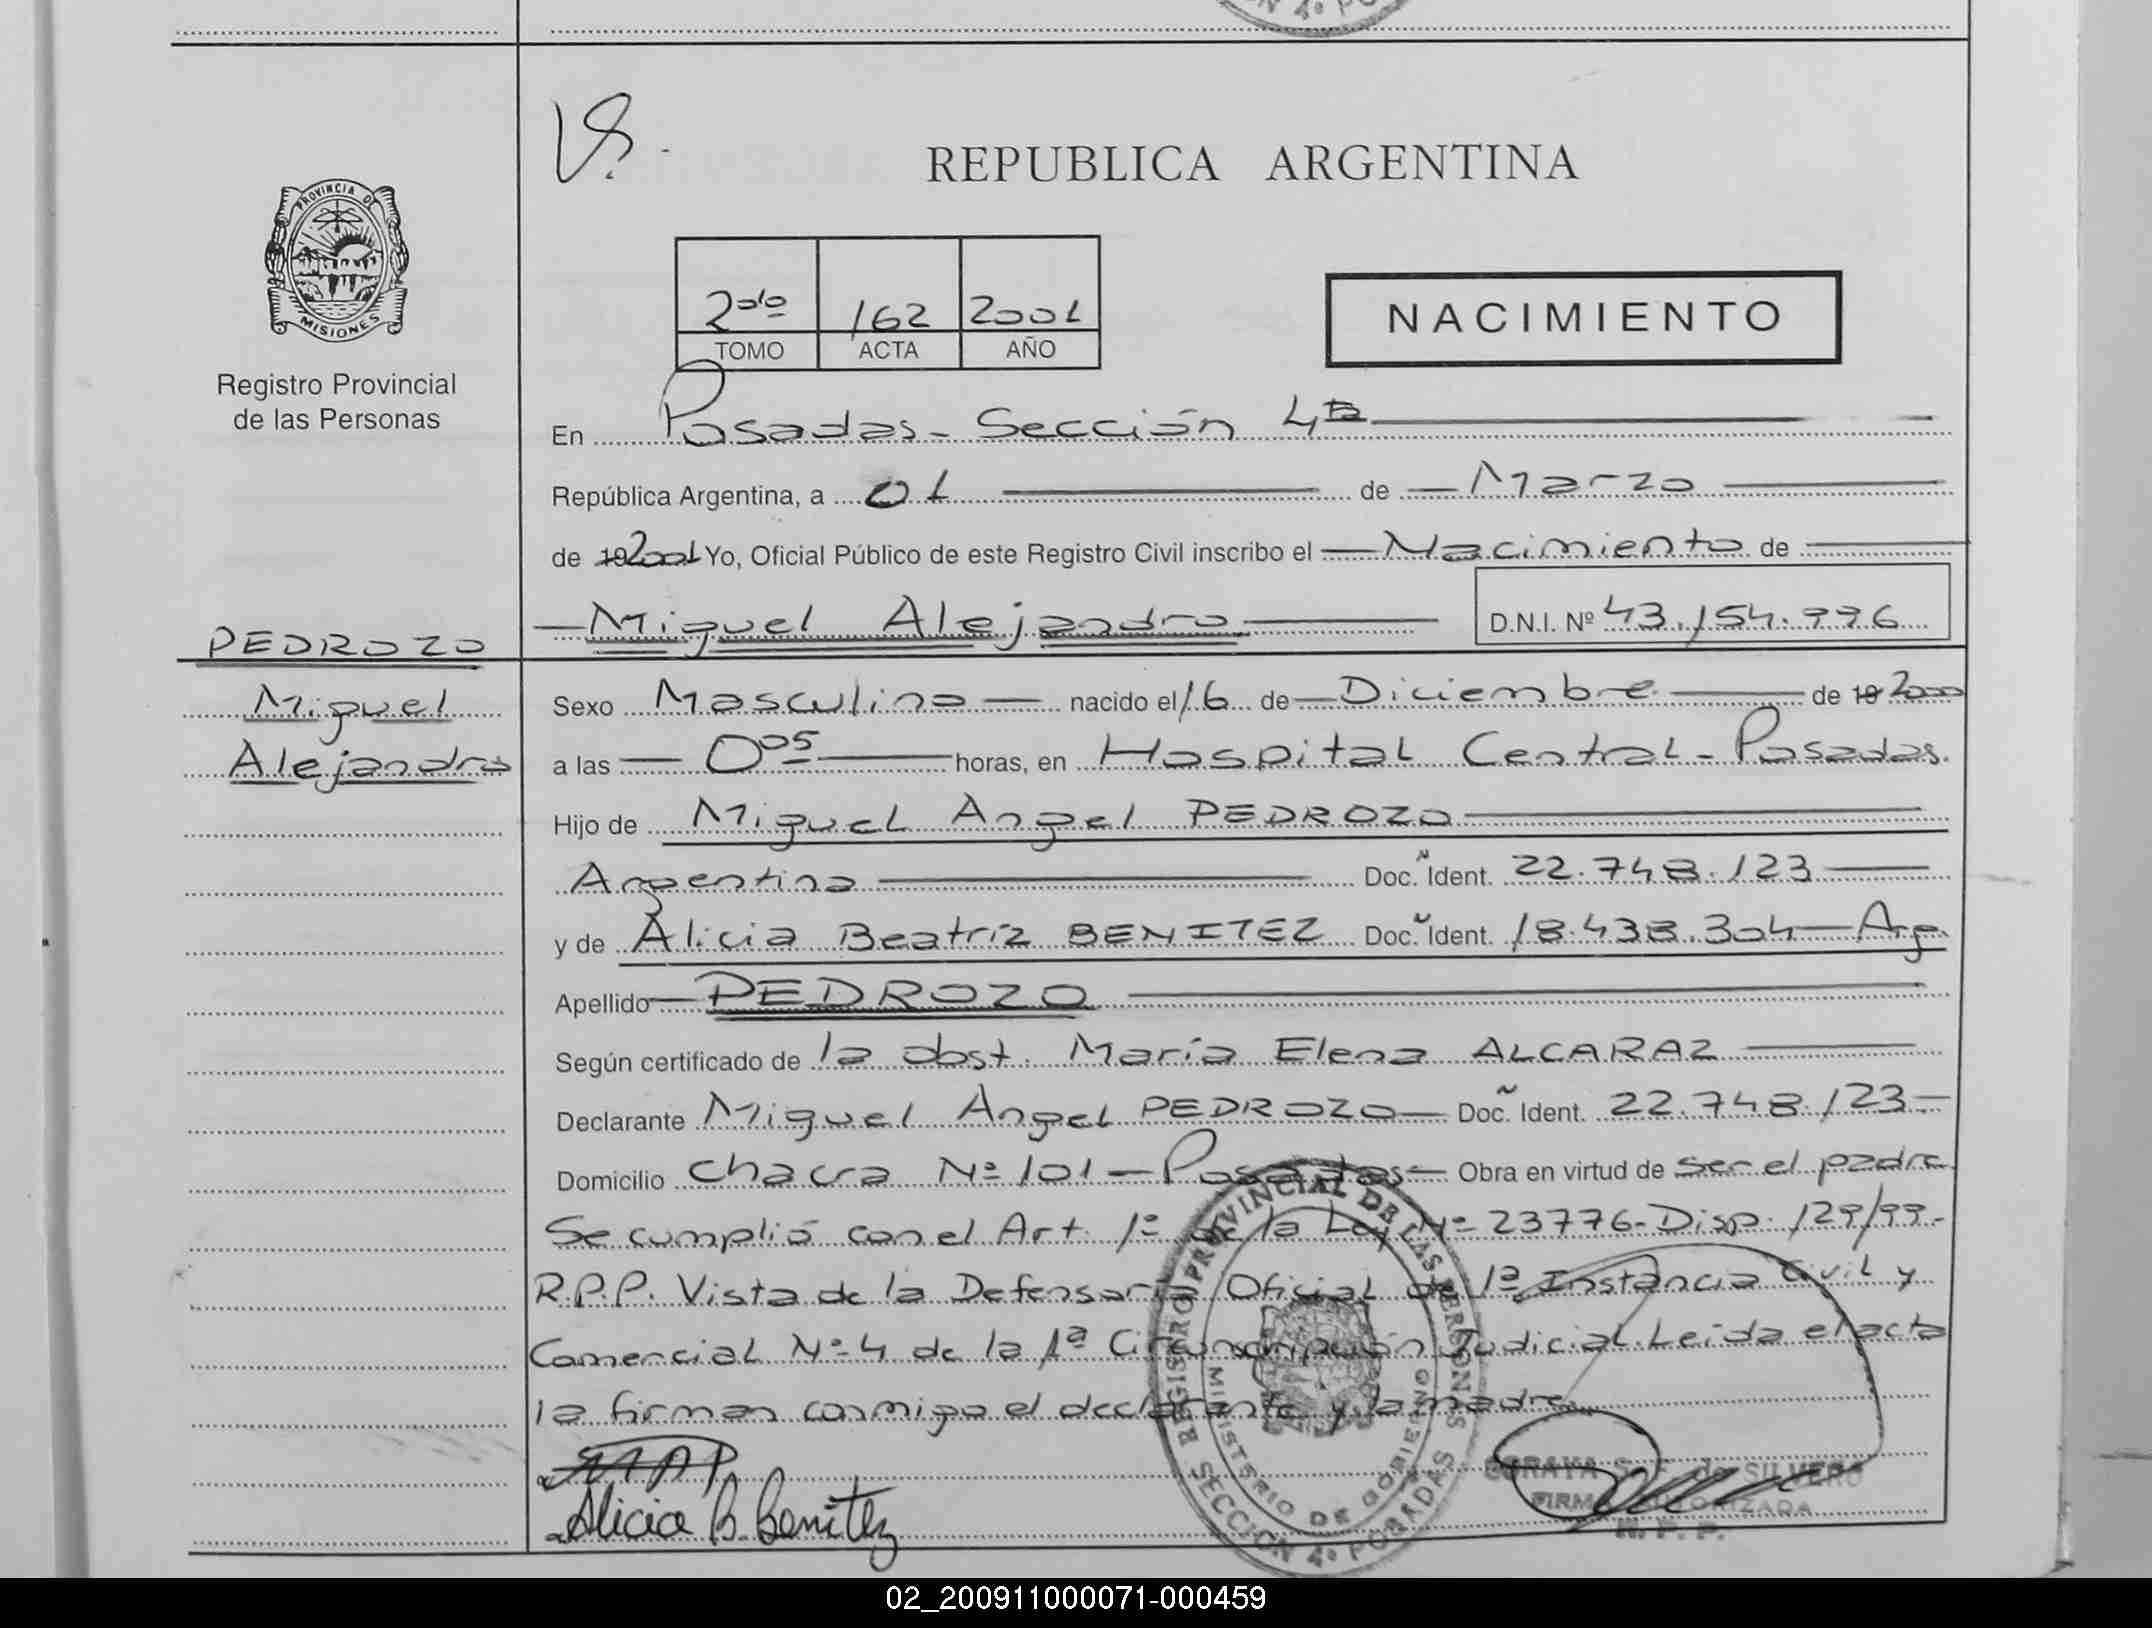 REPUBLICA ARGENTINA
PROVINCIA DE
MISIONES
Registro Provincial
de las Personas
2do 162 2001
TOMO ACTA AÑO
NACIMIENTO
En Posadas- Sección 4ta
República Argentina, a 01 de Marzo
de 19 2001 Yo, Oficial Público de este Registro Civil inscribo el Nacimiento de
Miguel Alejandro D.N.I. Nº 43.154.996
PEDROZO
Miguel
Alejandro
Sexo Masculino nacido el 16 de Diciembre de 19 2000
a las 0 05 horas, en Hospital Central- Posadas.
Hijo de Miguel Angel PEDROZO
Argentino Doc. Ident. 22.748.123
y de Alicia Beatríz BENITEZ Doc. Ident. 18.438.304 Arg.
Apellido PEDROZO
Según certificado de la obst. María Elena ALCARAZ
Declarante Miguel Angel PEDROZO Doc. Ident. 22.748.123
Domicilio Chacra Nº 101 - Posadas Obra en virtud de ser el padre
Se cumplió con el Art. 1º de la Ley Nº 23776- Disp. 129/99-
R.P.P. Vista de la Defensoría Oficial de 1ª Instancia Civil y
Comercial Nº 4 de la 1ª Circunscripción Judicial. Leída el acta
la firman conmigo el declarante y la madre
Alicia B. Benítez
REGISTRO PROVINCIAL DE LAS PERSONAS
MINISTERIO DE GOBIERNO
SECCION 4º POSADAS
de SILVERO
FIRMA AUTORIZADA
02_200911000071-000459